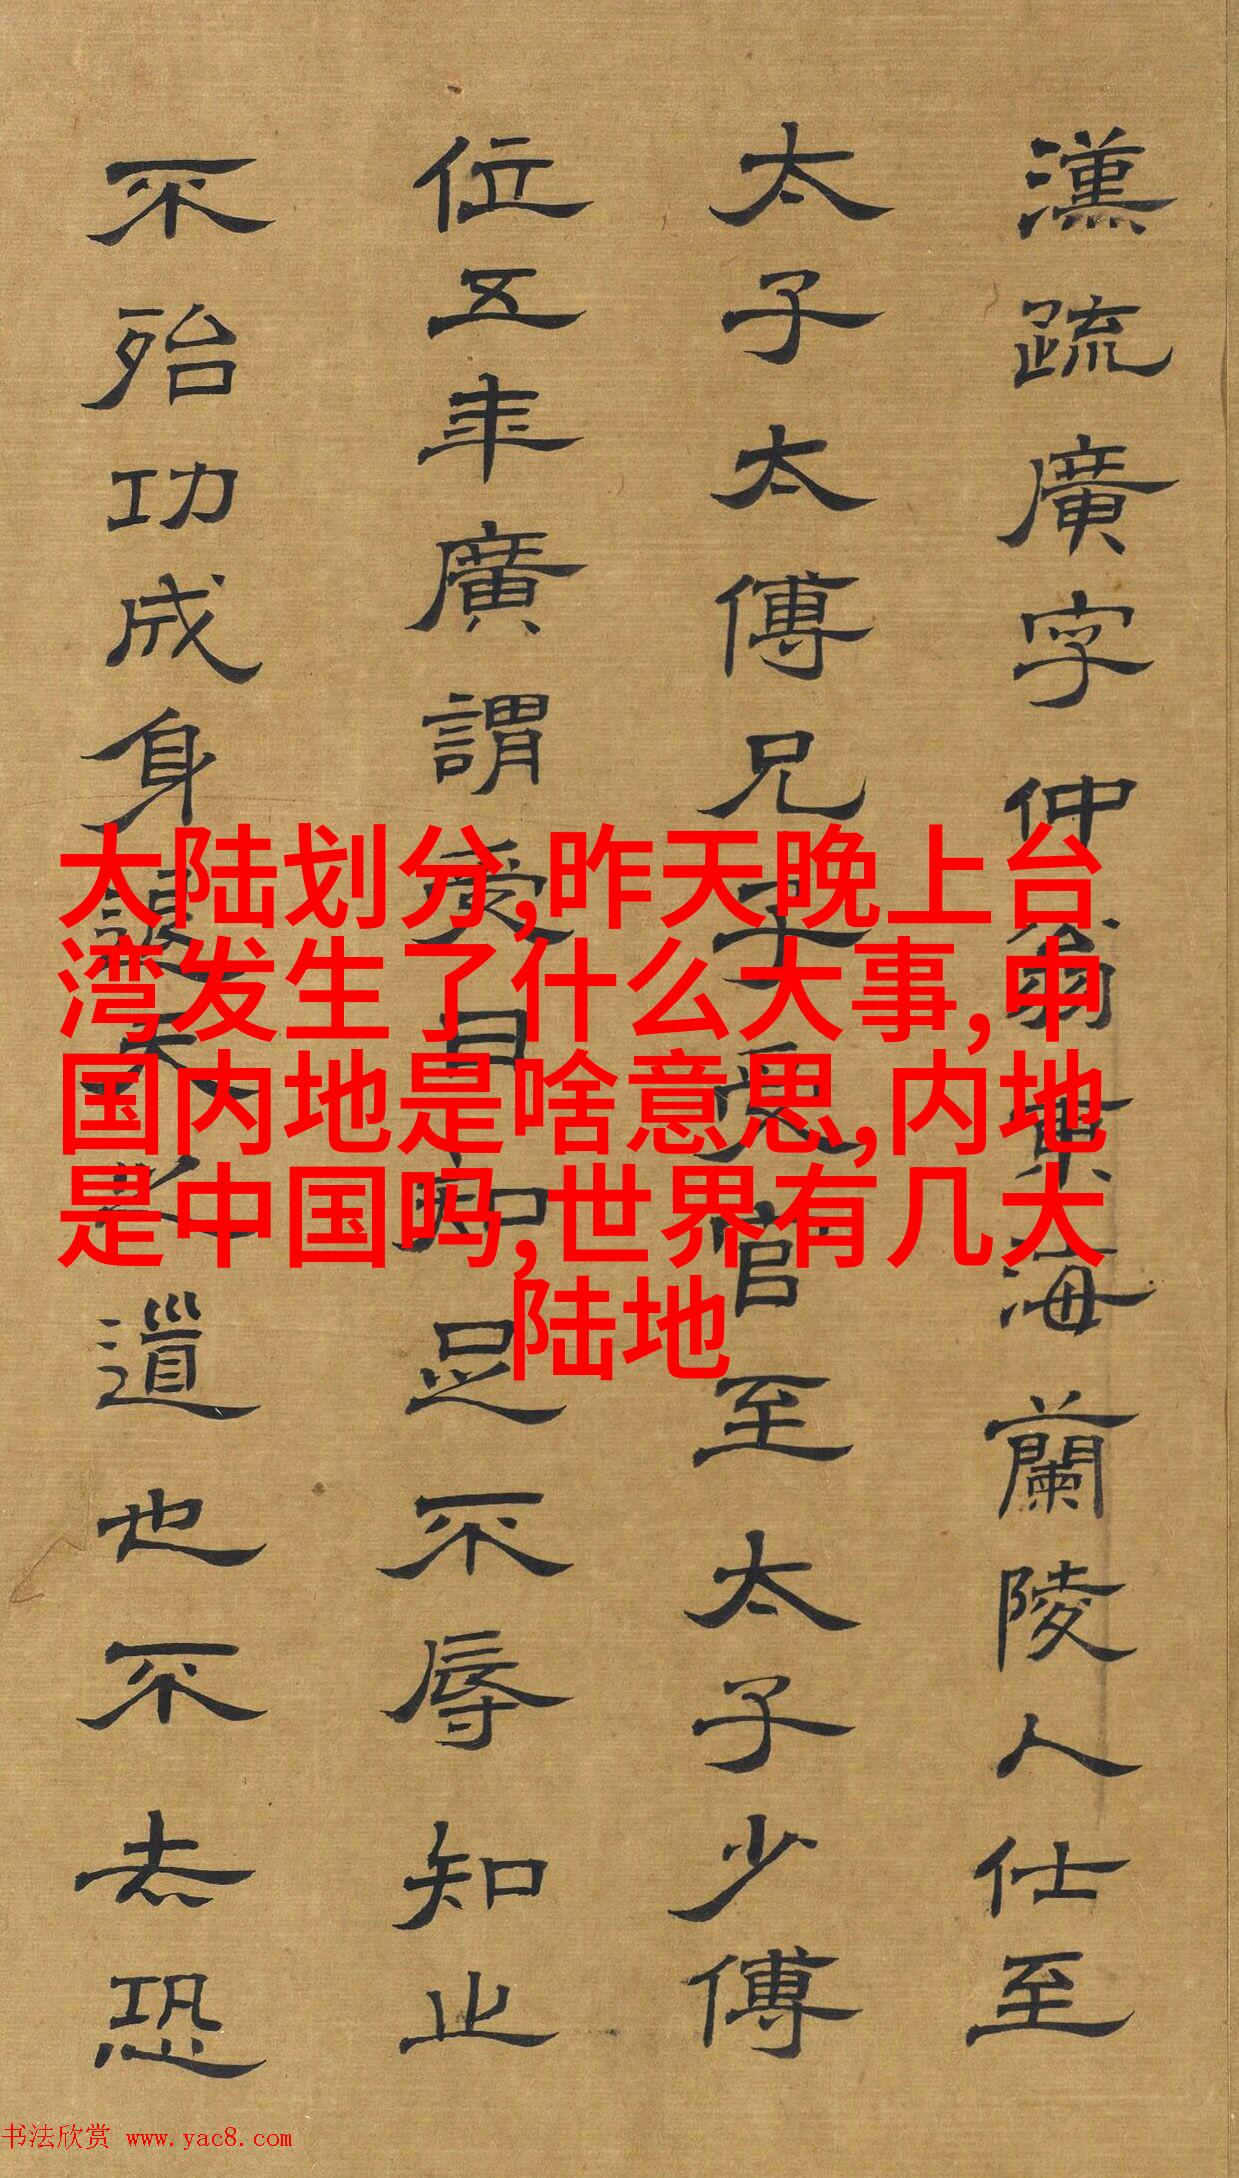 漢疏廣字仲翁東海蘭陵人仕至
太子太傅兄子受官至太子少傅
位五年廣謂受曰知足不辱知止
不殆功成身退天之道也不去恐
大陆划分,昨天晚上台
湾发生了什么大事,中
国内地是啥意思,内地
是中国吗,世界有几大
陆地
书法欣赏 www.yac8.com